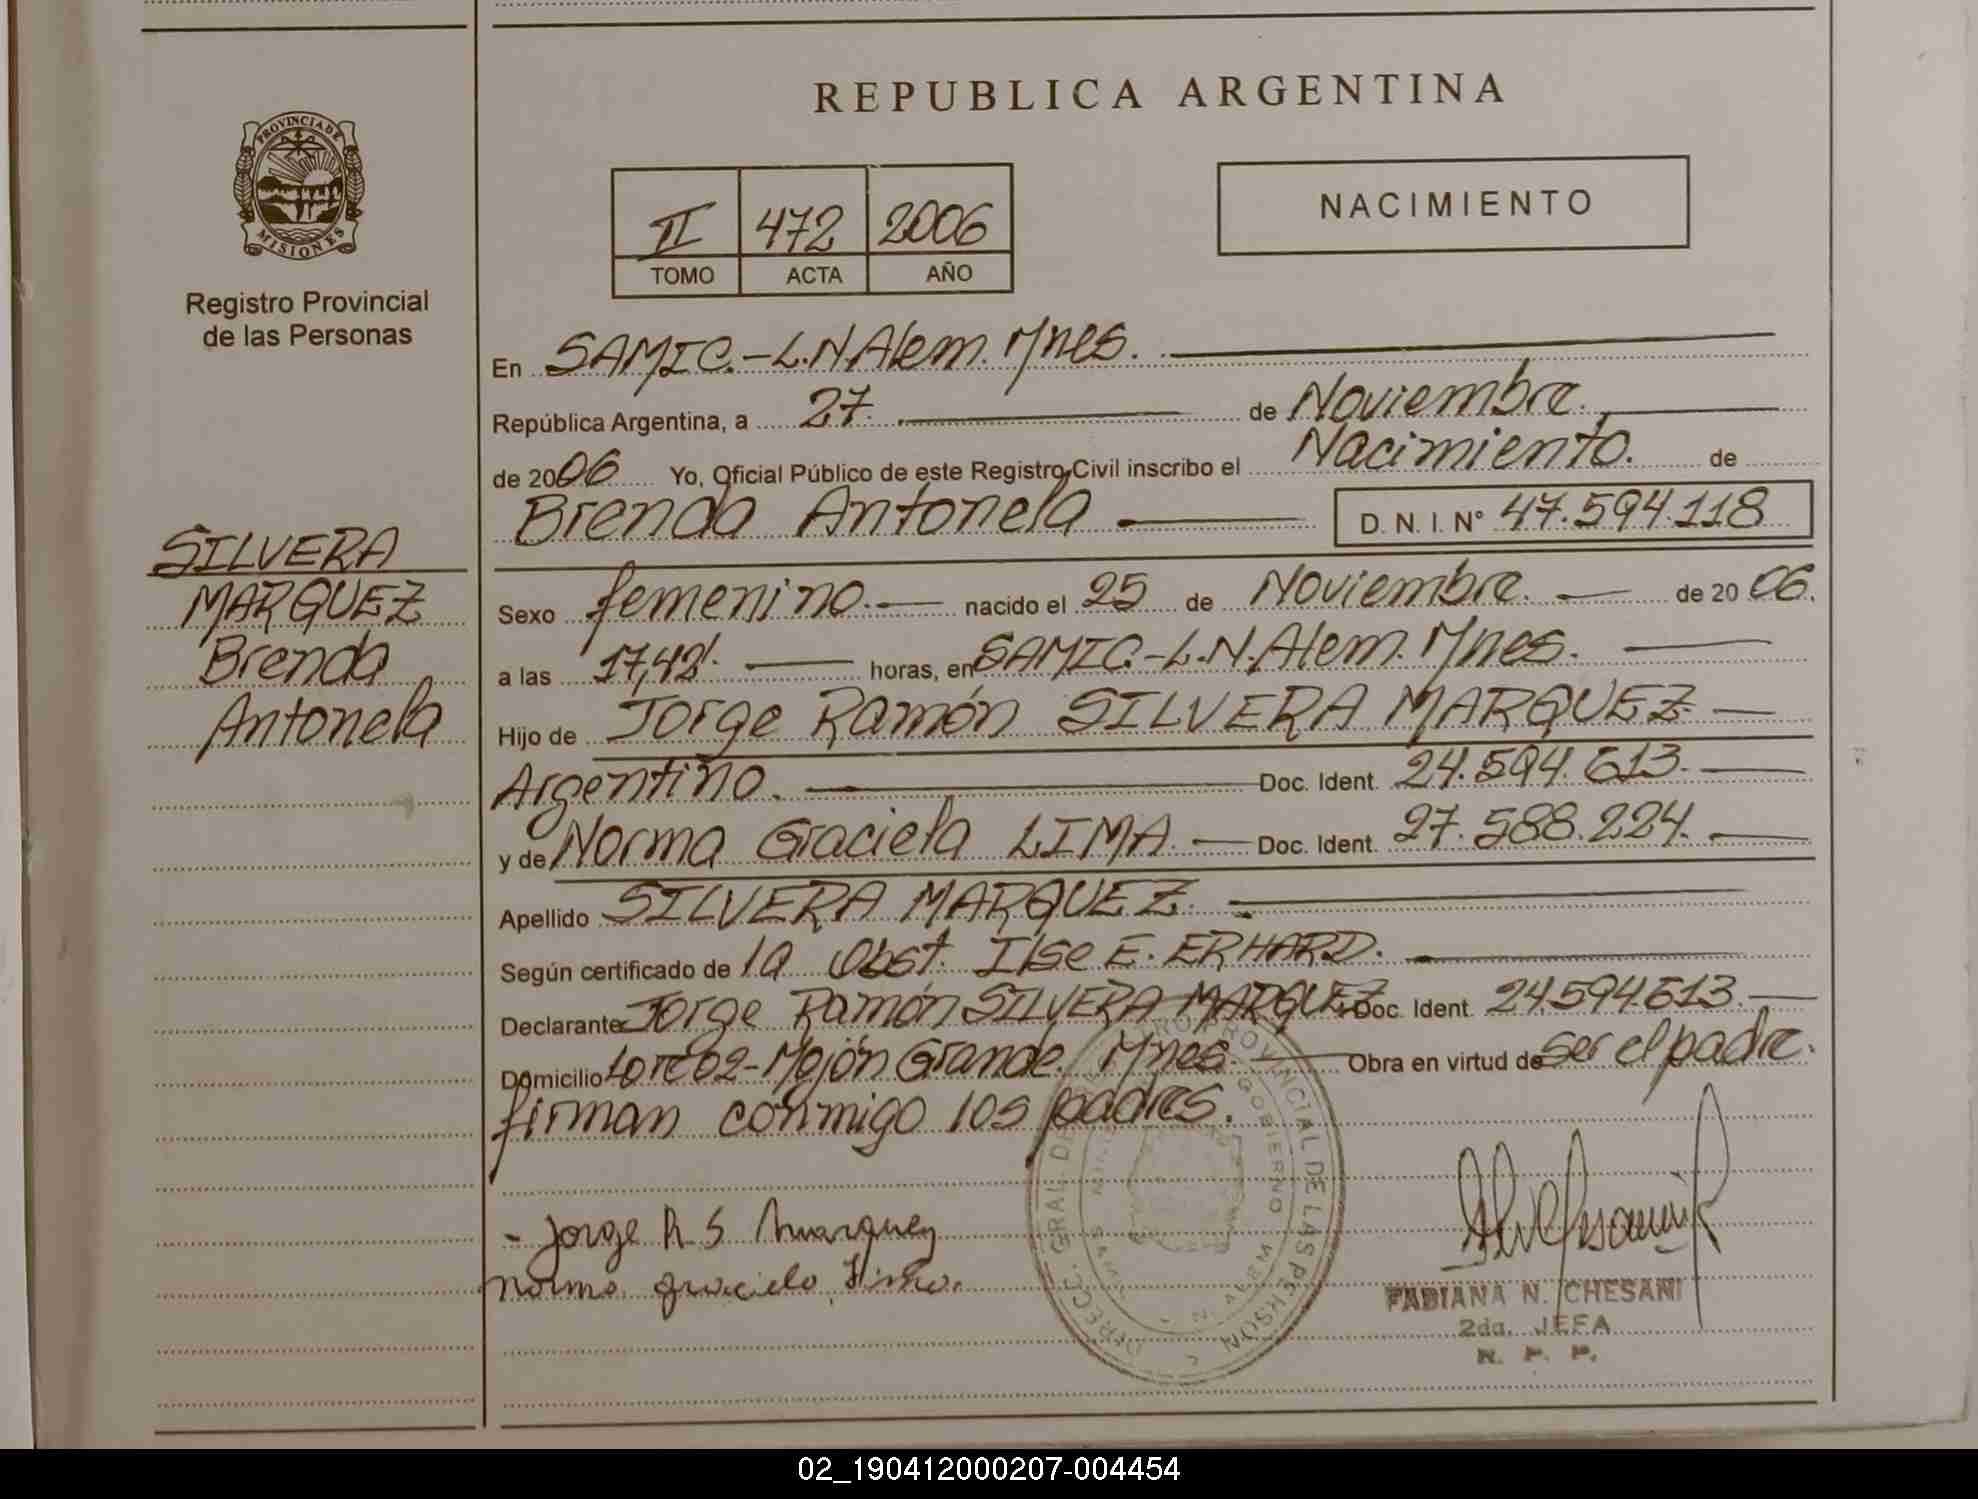 REPUBLICA ARGENTINA
PROVINCIA DE
MISIONES
Registro Provincial
de las Personas
II 472 2006
TOMO ACTA AÑO
NACIMIENTO
En SAMIC.-L.N.Alem. Mnes.
República Argentina, a 27. de Noviembre.
de 2006 Yo, Oficial Público de este Registro Civil inscribo el Nacimiento. de
Brenda Antonela D. N. I. Nº 47.594.118
SILVERA
MARQUEZ
Brenda
Antonela
Sexo femenino. nacido el 25 de Noviembre. de 2006.
a las 17,42'. horas, en SAMIC.-L.N.Alem. Mnes.
Hijo de Jorge Ramón SILVERA MARQUEZ
Argentino. Doc. Ident. 24.594.613.
y de Norma Graciela LIMA. Doc. Ident. 27.588.224.
Apellido SILVERA MARQUEZ.
Según certificado de la Obst. Ilse E. ERHARD.
Declarante Jorge Ramón SILVERA MARQUEZ Doc. Ident. 24,594.613.
Domicilio Lote 02-Mojón Grande. Mnes. Obra en virtud de ser el padre.
firman conmigo los padres.
- Jorge R S Marquez
norma graciela Lima.
FABIANA N. CHESANI
2da. JEFA
R. P. P.
02_190412000207-004454